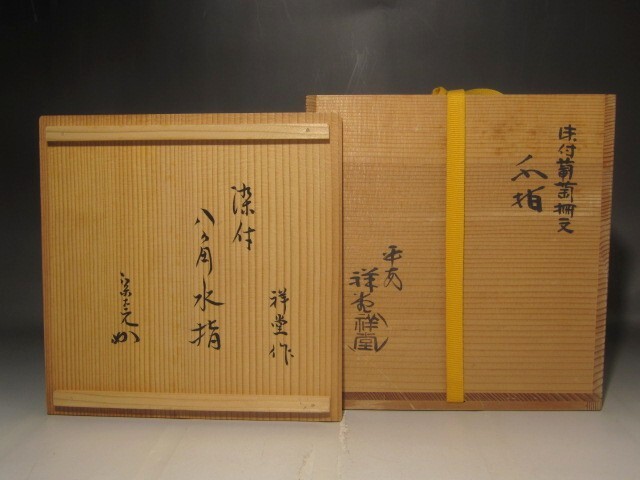 祥堂作
染付
八角水指
染付葡萄棚文
水指
平安
祥堂
祥堂